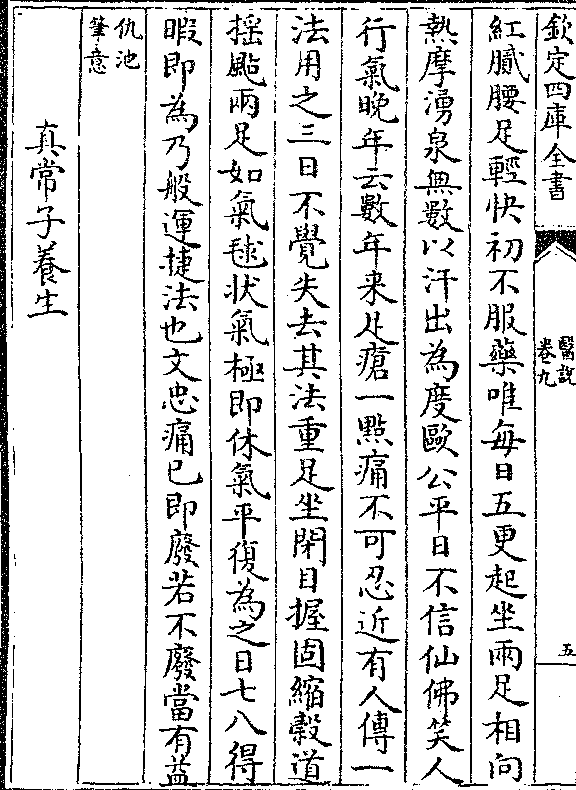 欽定四庫全書
醫說
卷九
五
紅膩腰足輕快初不服藥唯每日五更起坐兩足相向
熱摩湧泉無數以汗出為度歐公平日不信仙佛笑人
行氣晚年云數年来足瘡一點痛不可忍近有人傳一
法用之三日不覺失去其法重足坐閉目握固縮榖道
揺颭兩足如氣毬狀氣極即休氣平復為之日七八得
暇即為乃般運捷法也文忠痛已即廢若不廢當有益
仇池
筆意
真常子養生